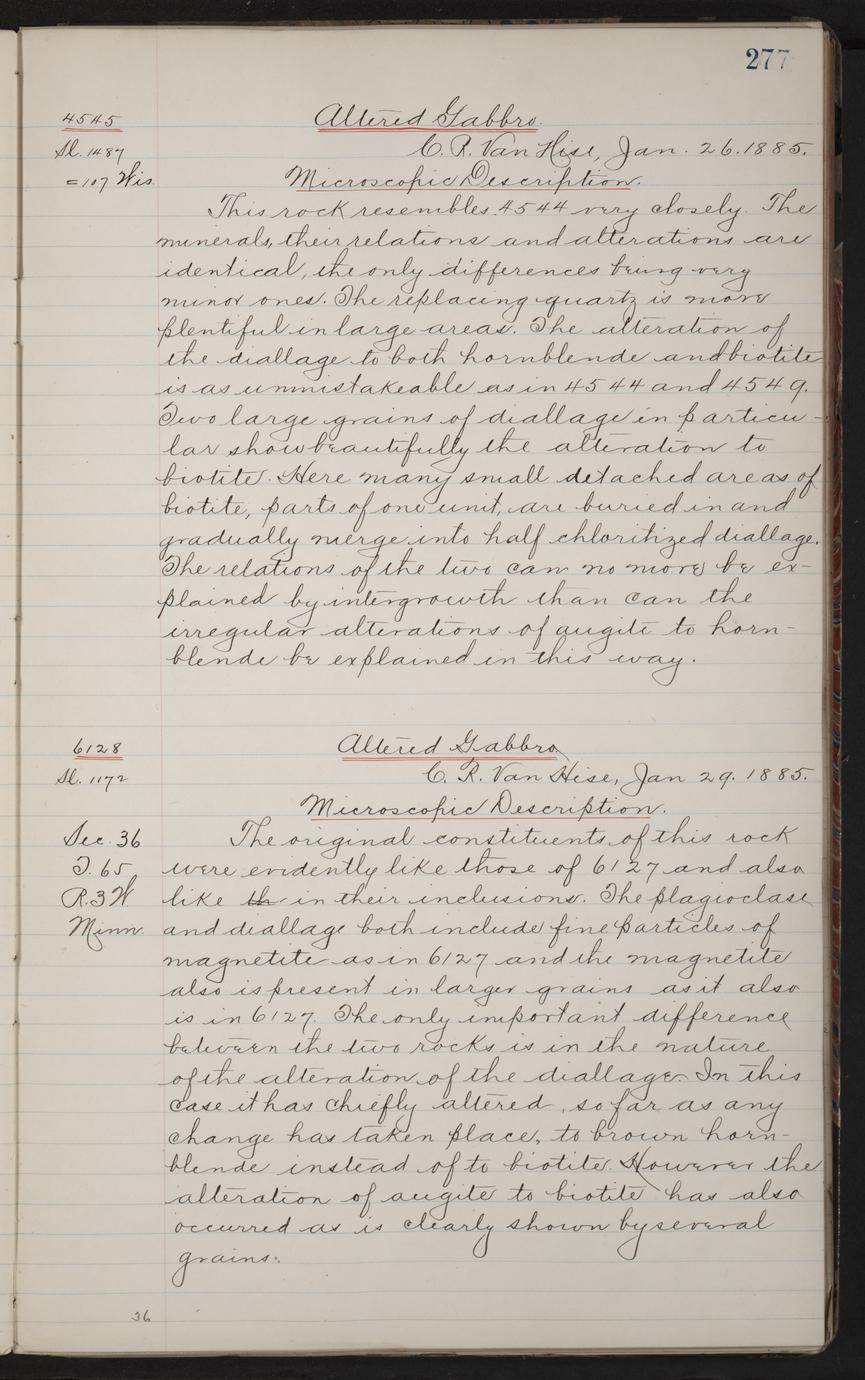 277
4545
Altered Gabbro.
Sl. 1487
C. R. Van Hise, Jan. 26. 1885.
= 107 Wis.
Microscopic Description.
This rock resembles 4544 very closely. The
minerals, their relations and alterations are
identical, the only differences being very
minor ones. The replacing quartz is more
plentiful in large areas. The alteration of
the diallage to both hornblende and biotite
is as unmistakeable as in 4544 and 4549.
Two large grains of diallage in particu-
lar show beautifully the alteration to
biotite. Here many small detached areas of
biotite, parts of one unit, are buried in and
gradually merge into half chloritized diallage.
The relations of the two can no more be ex-
plained by intergrowth than can the
irregular alterations of augite to horn-
blende be explained in this way.
6128
Altered Gabbro
Sl. 1172
C. R. Van Hise, Jan 29. 1885.
Microscopic Description.
Sec. 36
The original constituents of this rock
T. 65
were evidently like those of 6127 and also
R. 3 W.
like th in their inclusions. The plagioclase
Minn.
and diallage both include fine particles of
magnetite as in 6127 and the magnetite
also is present in larger grains as it also
is in 6127. The only important difference
between the two rocks is in the nature
of the alteration of the diallage. In this
case it has chiefly altered, so far as any
change has taken place, to brown horn-
blende instead of to biotite. However the
alteration of augite to biotite has also
occurred as is clearly shown by several
grains.
36